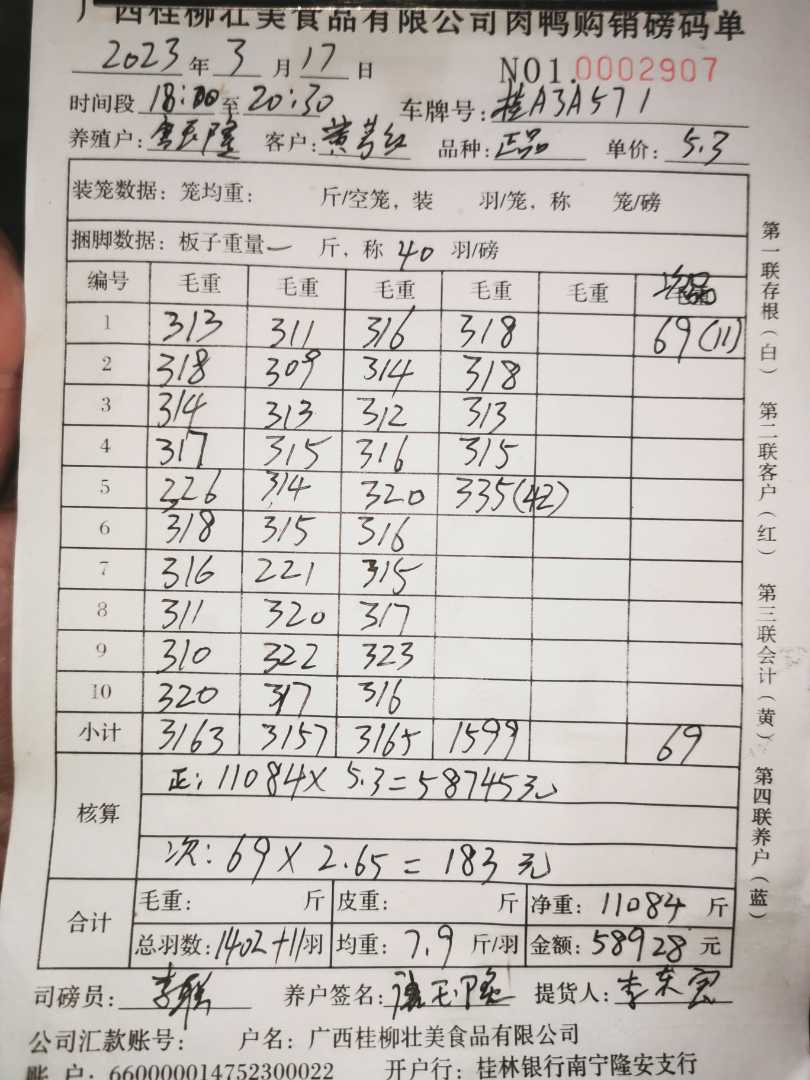 广西桂柳壮美食品有限公司肉鸭购销磅码单
2023 年 3 月 17 日 NO1.0002907
时间段 18:00 至 20:30 车牌号: 桂A3A571
养殖户: 客户: 黄 红 品种: 正品 单价: 5.3
装笼数据: 笼均重: 斤/空笼, 装 羽/笼, 称 笼/磅
捆脚数据: 板子重量 一 斤, 称 40 羽/磅
编号 毛重 毛重 毛重 毛重 毛重 次品
1 313 311 316 318 69(11)
2 318 309 314 318
3 314 313 312 313
4 317 315 316 315
5 326 314 320 335(42)
6 318 315 316
7 316 221 315
8 311 320 317
9 310 322 323
10 320 317 316
小计 3163 3157 3165 1599 69
核算 正: 11084 X 5.3 = 58745元
次: 69 X 2.65 = 183 元
合计 毛重: 斤 皮重: 斤 净重: 11084 斤
总羽数: 1402+11 羽 均重: 7.9 斤/羽 金额: 58928 元
司磅员: 李 养户签名: 提货人: 李
公司汇款账号: 户名: 广西桂柳壮美食品有限公司
账 户: 660000014752300022 开户行: 桂林银行南宁隆安支行
第一联存根(白) 第二联客户(红) 第三联会计(黄) 第四联养户(蓝)